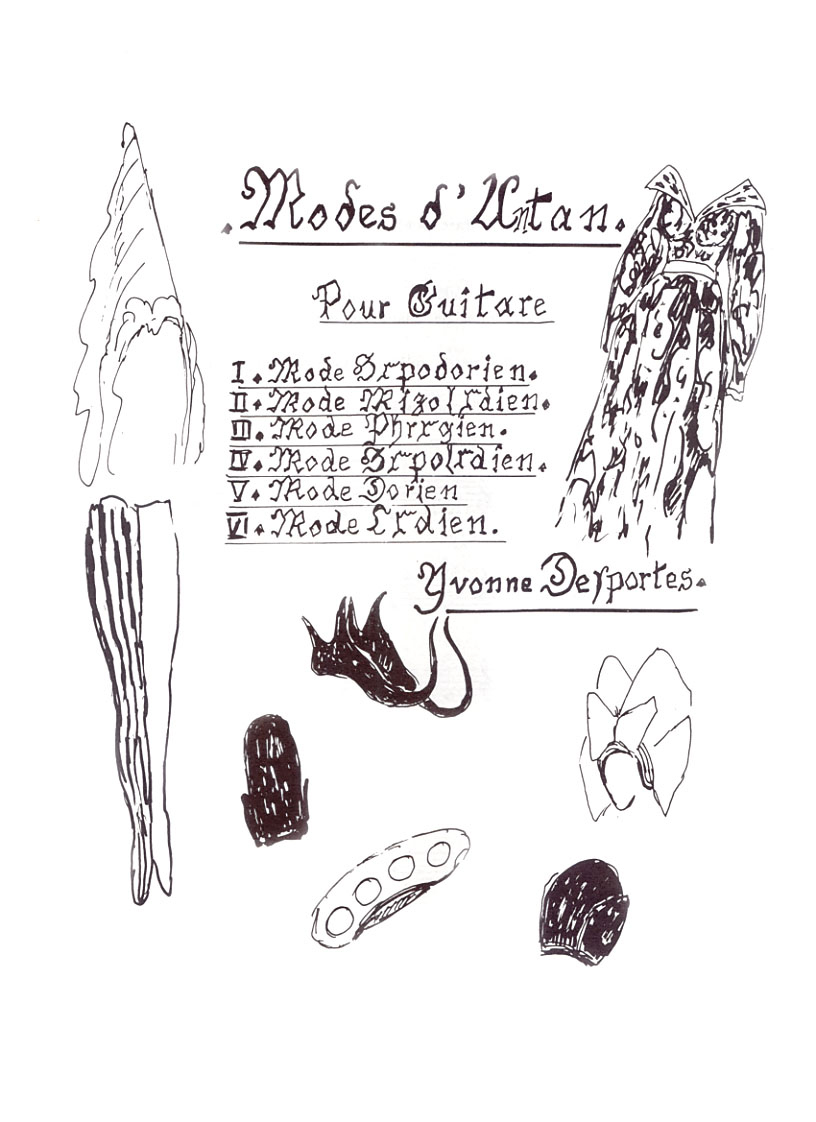 .Modes d'Antan.
Pour Guitare
I. Mode Hypodorien.
II. Mode Mixolydien.
III. Mode Phrygien.
IV. Mode Hypolydien.
V. Mode Dorien
VI. Mode Lydien.
Yvonne Desportes.